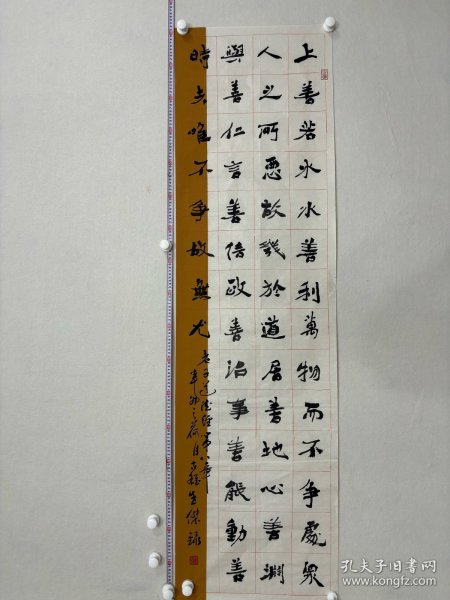 上善若水水善利萬物而不爭處衆
人之所惡故幾於道居善地心善淵
與善仁言善信政善治事善能動善
時夫唯不爭故無尤
老子道德經第八章
辛卯之荷月古生傑錄
孔夫子旧书网
book.kongfz.com